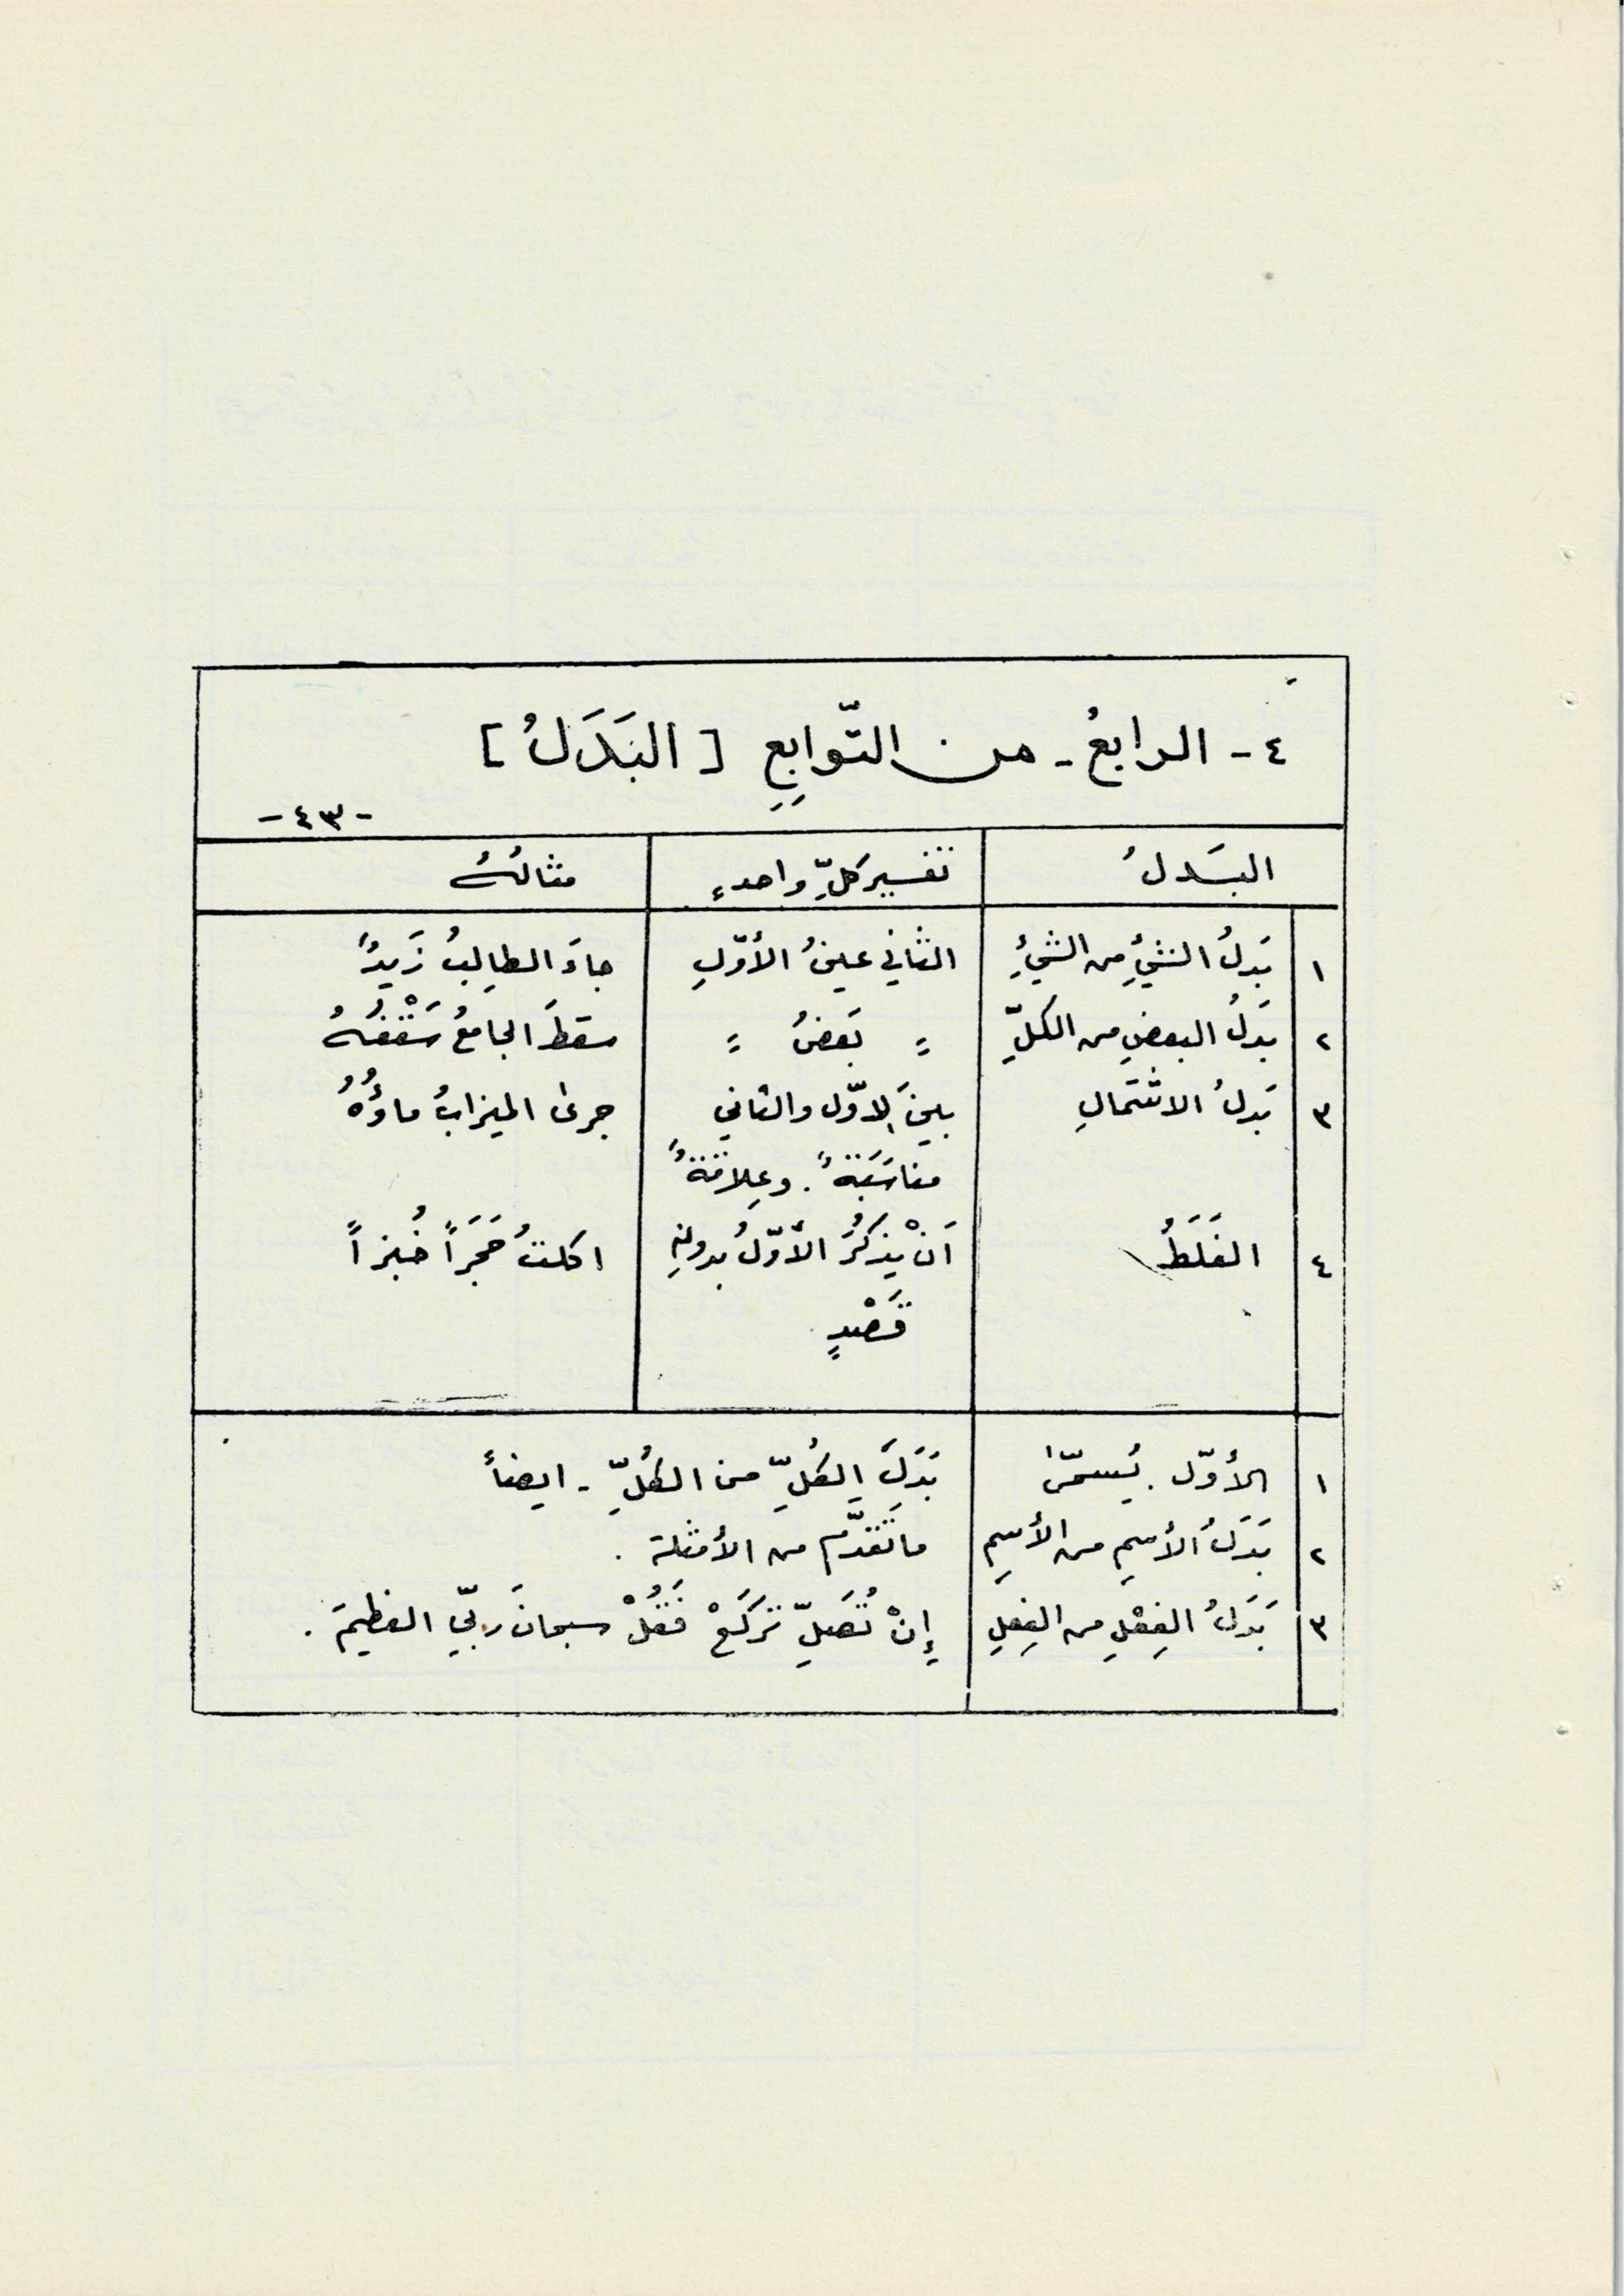 ٤ - الرابعُ - من التّوابِعِ [ البَدَلُ ]
- ٤٣ -
البَدلُ تفسير كلِّ واحدٍ مثالُهُ
١ بَدلُ الشيْءِ من الشيْءِ الثاني عينُ الأوّلِ جاءَ الطالِبُ زَيدٌ
٢ بَدَلُ البعضِ من الكلِّ = بَعضُ = سقطَ الجامعُ سَقْفُهُ
٣ بَدلُ الاشتمالِ بينَ الاوّل والثاني جرىٰ الميزابُ ماؤُهُ
مناسَبَةٌ . وعِلاقةٌ
٤ الغَلَطُ اَنْ يذكُرَ الأوّلُ بدونِ اكلتُ حَجَراً خُبزاً
قَصْدٍ .
١ الأوّل . يُسمّىٰ بَدَلَ الكُلِّ من الكُلِّ - ايضاً
٢ بَدَلُ الأسمِ من الأسمِ ماتَقدّم من الأمثلة .
٣ بَدَلُ الفِعْلِ من الفِعلِ إِنْ تُصَلِّ تركَعْ فَقُلْ سبحانَ ربّي العظيمَ .